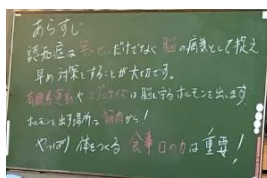 あらすじ
認知症は年のせいだけでなく脳の病気として捉え
早め対策をすることが大切です。
有酸素運動や は脳を守るホルモンを出します。
ホルモンを出す場所って筋肉から!
やっぱり体をつくる食事の力は重要!